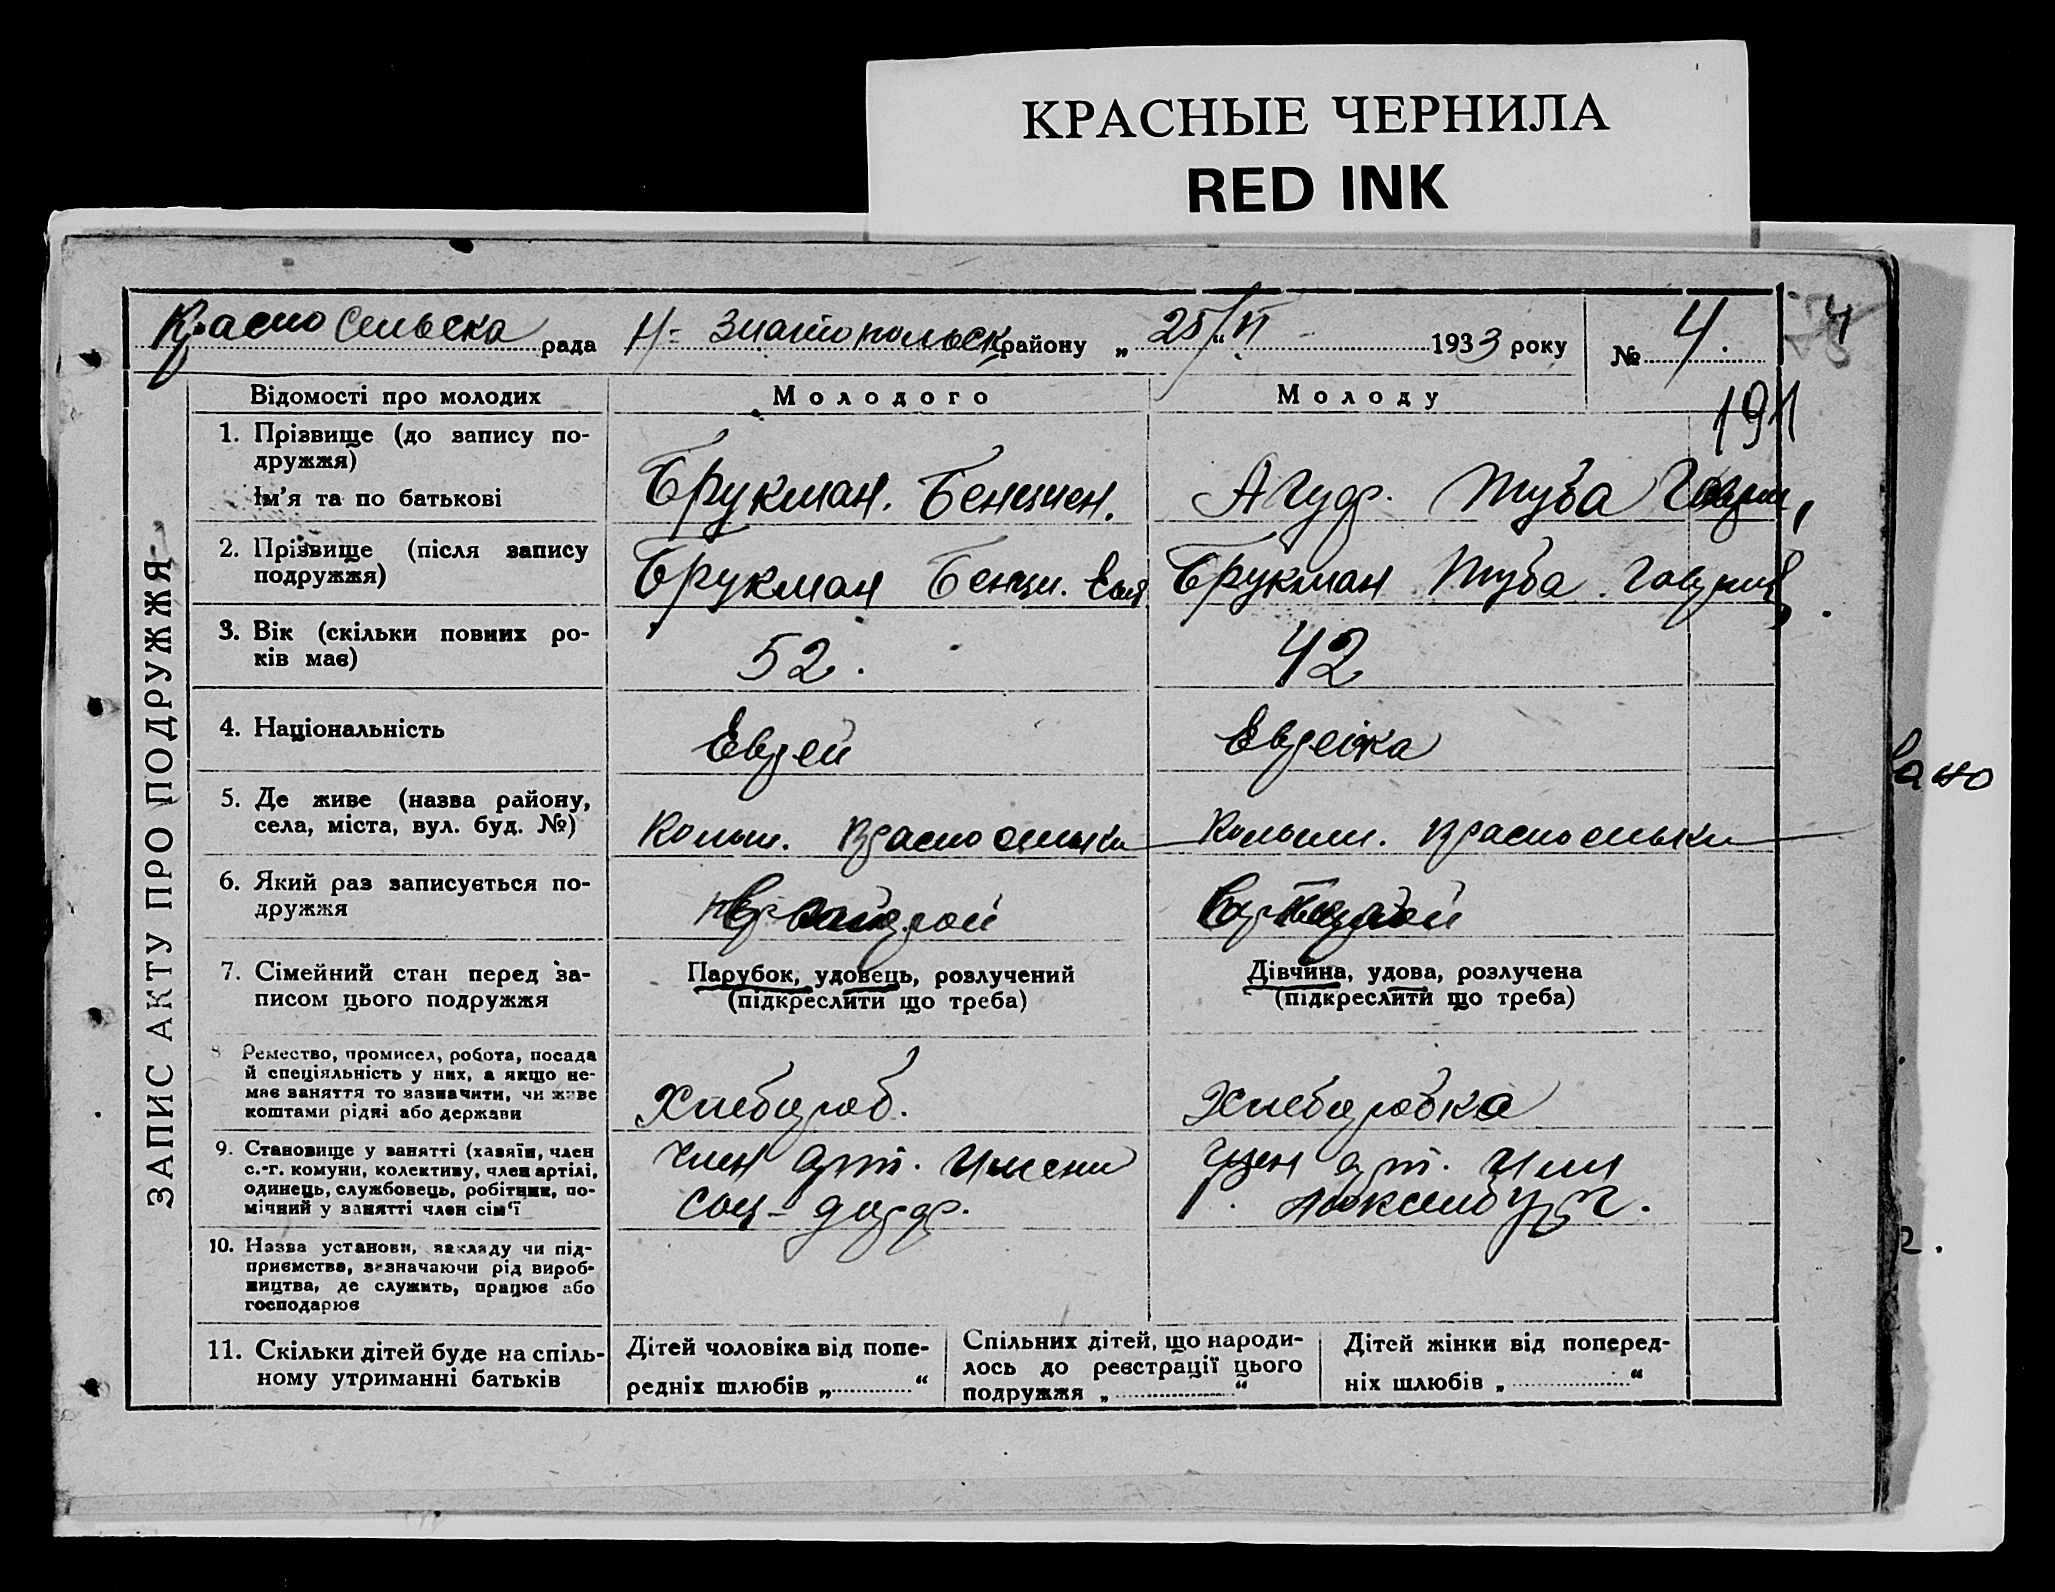 КРАСНЫЕ ЧЕРНИЛА
RED INK
Красно Сельска рада Н- Златопольск району „ 25/VI “ 1933 року № 4.
4
191
ЗАПИС АКТУ ПРО ПОДРУЖЖЯ
Відомості про молодих
Молодого
Молоду
1. Прізвище (до запису по-
дружжя)
Ім'я та по батькові
Брукман. Бенцион.
Агуф. Туба
2. Прізвище (після запису
подружжя)
Брукман Бенци.
Брукман Туба
3. Вік (скільки повних ро-
ків має)
52.
42
4. Національність
Еврей
Еврейка
5. Де живе (назва району,
села, міста, вул. буд. №)
Колон. Красноселька
Колони. Красноселька
6. Який раз записується по-
дружжя
7. Сімейний стан перед за-
писом цього подружжя
Парубок, удовець, розлучений
(підкреслити що треба)
Дівчина, удова, розлучена
(підкреслити що треба)
8 Ремество, промисел, робота, посада
й спеціяльність у них, а якщо не-
має заняття то зазначити, чи живе
коштами рідні або держави
Хлебороб.
Хлеборобка
9. Становище у занятті (хазяїн, член
с.-г. комуни, колективу, член артілі,
одинець, службовець, робітник, по-
мічний у занятті член сім'ї
член арт. Имени
Соц-
член арт. Им
Р. Люксембург.
10. Назва установи, закладу чи під-
приємства, зазначаючи рід вироб-
ництва, де служить, працює або
господарює
11. Скільки дітей буде на спіль-
ному утриманні батьків
Дітей чоловіка від попе-
редніх шлюбів „ “
Спільних дітей, що народи-
лось до реєстрації цього
подружжя „ “
Дітей жінки від поперед-
ніх шлюбів „ “